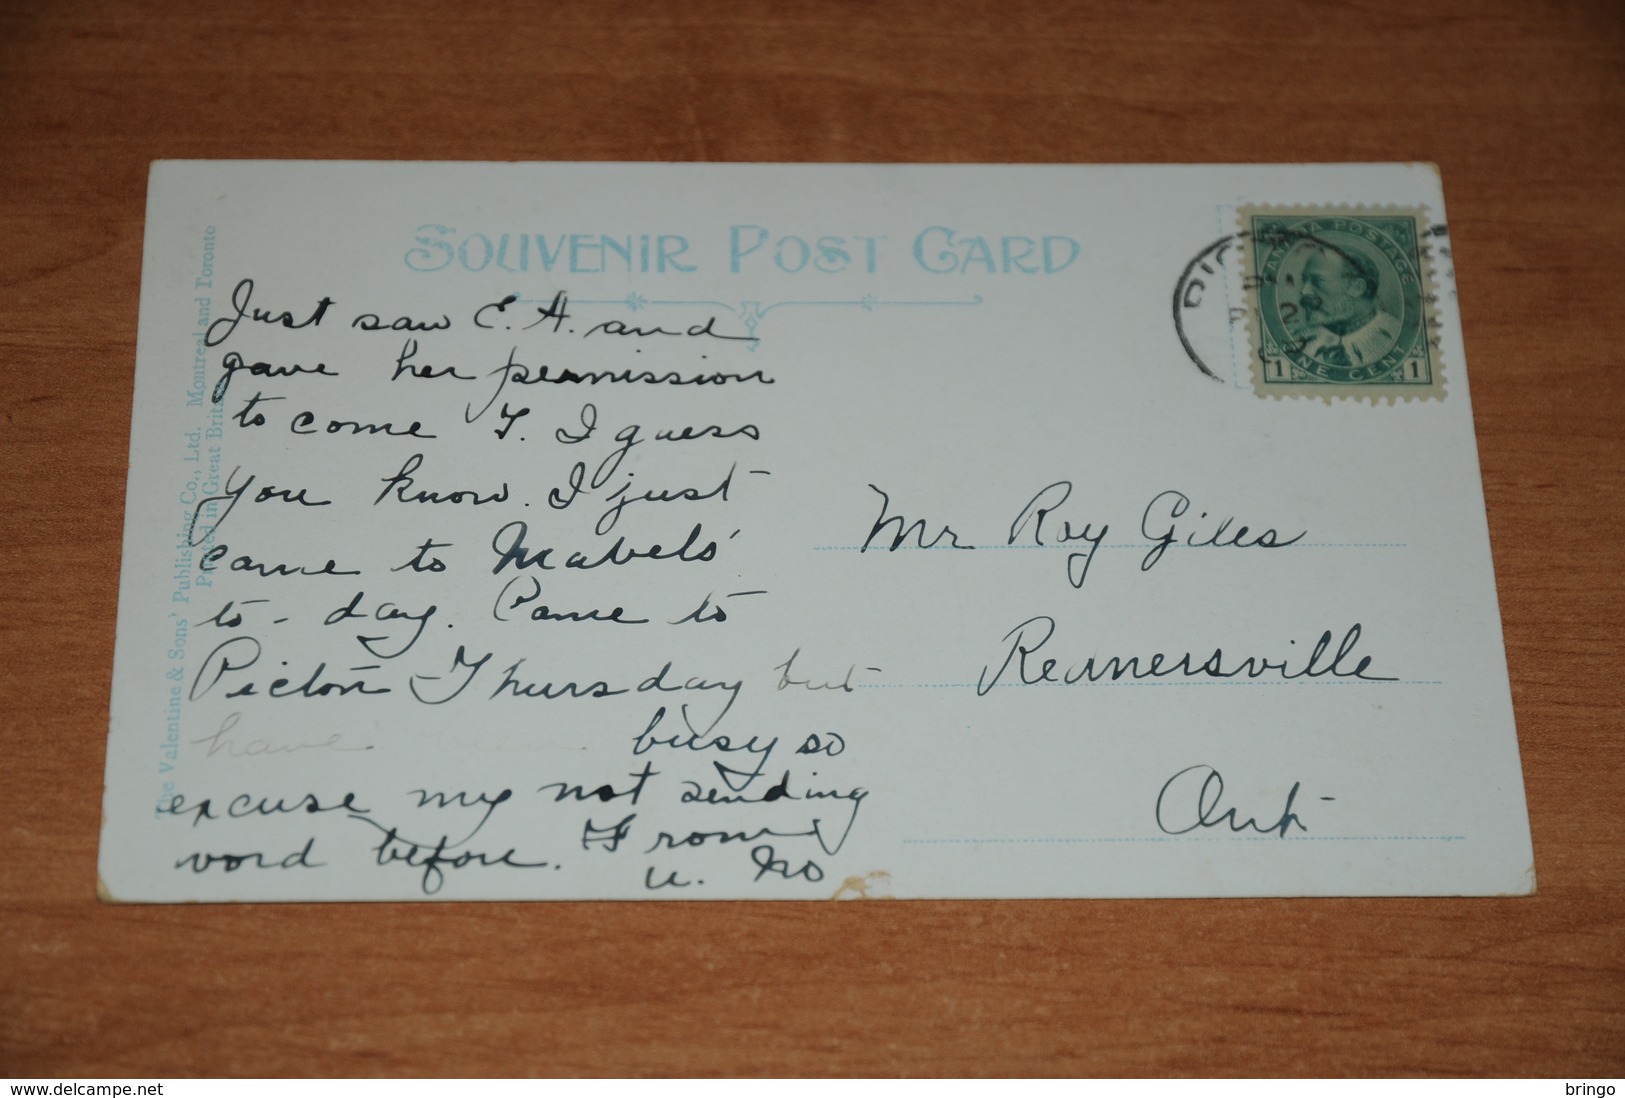 SOUVENIR POST CARD
The Valentine & Sons' Publishing Co., Ltd. Montreal and Toronto
Printed in Great Britain
CANADA POSTAGE
1 ONE CENT 1
Just saw E. A. and
gave her permission
to come T. I guess
you know. I just
came to Mabels'
to-day. Came to
Picton Thursday but
have been busy so
excuse my not sending
word before. From
u. No
Mr Roy Giles
Rednersville
Ont-
delcampe.net
bringo